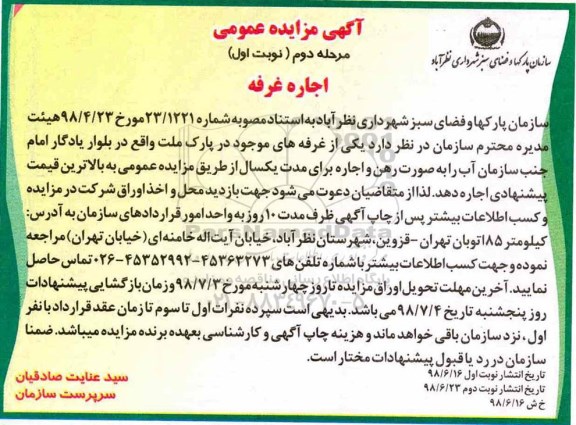 آگهی مزایده عمومی
مرحله دوم ( نوبت اول)
سازمان پارکها و فضای سبز شهرداری نظرآباد
اجاره غرفه
سازمان پارکها و فضای سبز شهرداری نظر آباد به استناد مصوبه شماره ۲۳/۱۲۲۱ مورخ ۹۸/۴/۲۳ هیئت
مدیره محترم سازمان در نظر دارد یکی از غرفه های موجود در پارک ملت واقع در بلوار یادگار امام
جنب سازمان آب را به صورت رهن و اجاره برای مدت یکسال از طریق مزایده عمومی به بالاترین قیمت
پیشنهادی اجاره دهد. لذا از متقاضیان دعوت می شود جهت بازدید محل و اخذ اوراق شرکت در مزایده
و کسب اطلاعات بیشتر پس از چاپ آگهی ظرف مدت ۱۰ روز به واحد امور قراردادهای سازمان به آدرس:
کیلومتر ۸۵ اتوبان تهران -قزوین، شهرستان نظرآباد، خیابان آیت اله خامنه ای (خیابان تهران) مراجعه
نموده و جهت کسب اطلاعات بیشتر با شماره تلفن های ۴۵۳۶۳۲۷۳-۴۵۳۵۲۹۹۲-۰۲۶ تماس حاصل
نمایید. آخرین مهلت تحویل اوراق مزایده تا روز چهارشنبه مورخ ۹۸/۷/۳ و زمان بازگشایی پیشنهادات
روز پنجشنبه تاریخ ۹۸/۷/۴ می باشد. بدیهی است سپرده نفرات اول تا سوم تا زمان عقد قرارداد با نفر
اول ، نزد سازمان باقی خواهد ماند و هزینه چاپ آگهی و کارشناسی بعهده برنده مزایده میباشد. ضمنا
سازمان در رد یا قبول پیشنهادات مختار است.
تاریخ انتشار نوبت اول ۹۸/۶/۱۶
تاریخ انتشار نوبت دوم ۹۸/۶/۲۳
خ ش ۹۸/۶/۱۶
سید عنایت صادقیان
سرپرست سازمان
ParsNamadData
۰۲۱-۸۸۳۴۹۶۷۰-۵